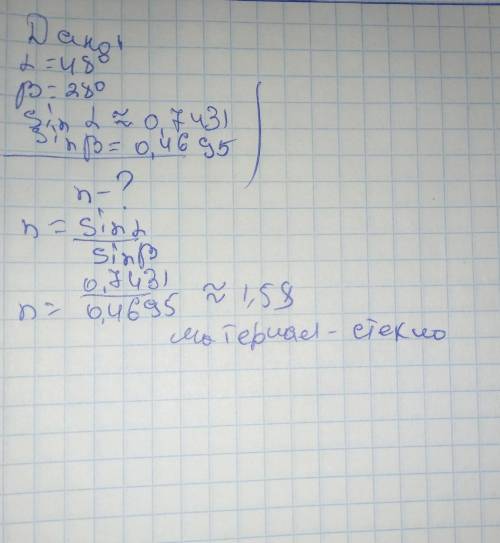 Дано!
α = 48°
β = 28°
Sin α ≈ 0,7431
Sin β = 0,4695
n - ?
n = Sin α / Sin β
n = 0,7431 / 0,4695 ≈ 1,58
материал - стекло